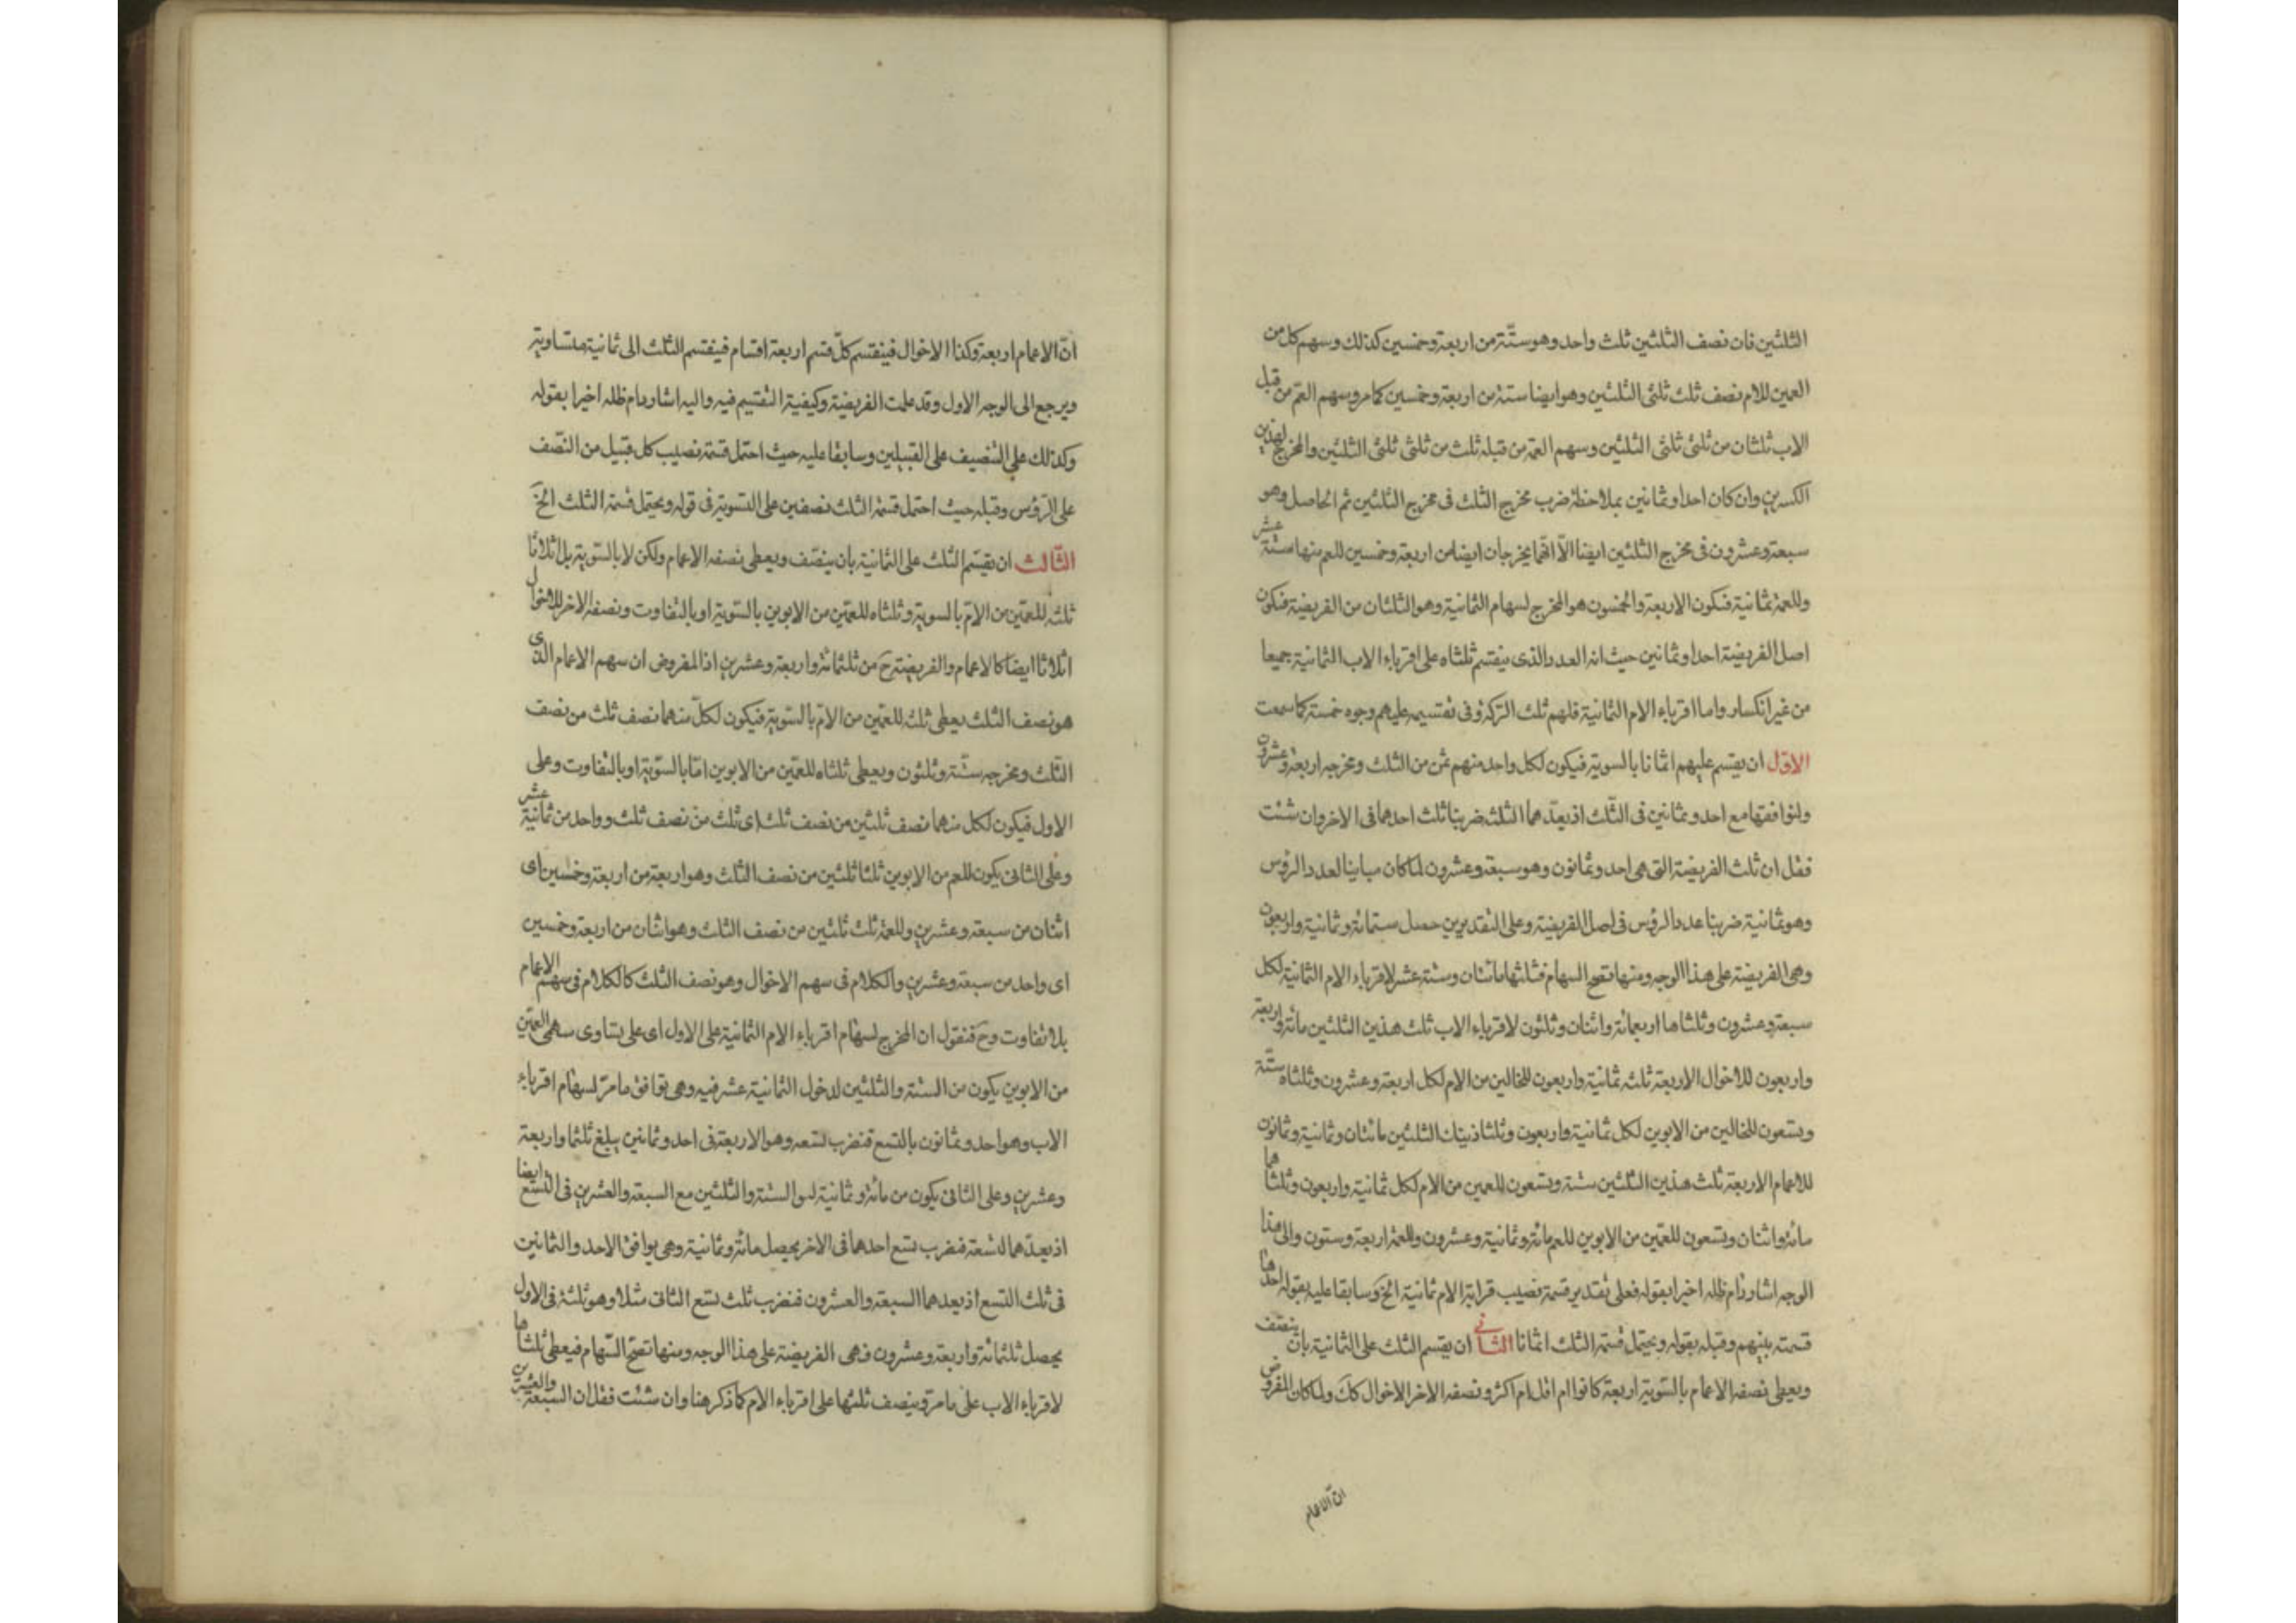 الثلثين فان نصف الثلثين ثلث واحد وهو ستّة من اربعة وخمسين كذلك وسهم كل من
العمين للام نصف ثلث ثلثى الثلثين وهو ايضا ستة من اربعة وخمسين كما مر وسهم العم من قبل
الاب ثلثان من ثلثى ثلثى الثلثين وسهم العمة من قبله ثلث من ثلثى ثلثى الثلثين والمخرج لهذين
الكسرين وان كان احدا وثمانين بملاحظة ضرب مخرج الثلث فى مخرج الثلثين ثم الحاصل وهو
سبعة وعشرون فى مخرج الثلثين ايضا الّا انّهما يخرجان ايضا من اربعة وخمسين للعم منها ستة عشر
وللعمة ثمانية فتكون الاربعة والخمسون هو المخرج لسهام الثمانية وهو الثلثان من الفريضة فتكون
اصل الفريضة احدا وثمانين حيث انه العدد الذى ينقسم ثلثاه على اقرباء الاب الثمانية جميعا
من غير انكسار واما اقرباء الام الثمانية فلهم ثلث التركة وفى تقسيمه عليهم وجوه خمسة كما سمعت
الاوّل ان يقسم عليهم اثمانا بالسوية فيكون لكل واحد منهم ثمن من الثلث ومخرجه اربعة وعشرون
ولتوافقها مع احد وثمانين فى الثّلث اذ يعدّهما الثلثة ضربنا ثلث احدهما فى الاخر وان شئت
فقل ان ثلث الفريضة التى هى احد وثمانون وهو سبعة وعشرون لما كان مباينا لعدد الرؤس
وهو ثمانية ضربنا عدد الرؤس فى اصل الفريضة وعلى التقديرين حصل ستمائة وثمانية واربعون
وهى الفريضة على هذا الوجه ومنها تصح السهام فثلثها مائتان وستة عشر لاقرباء الام الثمانية لكل
سبعة وعشرون وثلثاها اربعمائة واثنان وثلثون لاقرباء الاب ثلث هذين الثلثين مائة واربعة
واربعون للاخوال الاربعة ثلثه ثمانية واربعون للخالين من الام لكل اربعة وعشرون وثلثاه ستّة
وتسعون للخالين من الابوين لكل ثمانية واربعون وثلثا ذينك الثلثين مائتان وثمانية وثمانون
للاعمام الاربعة ثلث هذين الثلثين ستة وتسعون للعمين من الام لكل ثمانية واربعون وثلثاهما
مائة واثنان وتسعون للعمّين من الابوين للعم مائة وثمانية وعشرون وللعمة اربعة وستون والى هذا
الوجه اشار دام ظله اخيرا بقوله فعلى تقدير قسمة نصيب قرابة الام ثمانية الخ وسابقا عليه بقوله احدها
قسمته بينهم وقبله بقوله ويحتمل قسمة الثلث اثمانا الثانى ان يقسم الثلث على الثمانية بان ينصّف
ويعطى نصفه الاعمام بالسّوية اربعة كانوا ام اقل ام اكثر ونصفه الاخر الاخوال كك ولما كان المفروض
ان الاعمام
انّ الاعمام اربعة وكذا الاخوال فينقسم كلّ قسم اربعة اقسام فينقسم الثلث الى ثمانية متساوية
ويرجع الى الوجه الاول وقد علمت الفريضة وكيفية التقسيم فيه واليه اشار دام ظله اخيرا بقوله
وكذلك على التنصيف على القبيلين وسابقا عليه حيث احتمل قسمة نصيب كل قبيل من النّصف
على الرّؤس وقبله حيث احتمل قسمة الثلث نصفين على التسوية فى قوله ويحتمل قسمة الثلث الخ
الثّالث ان يقسّم الثلث على الثمانية بان ينصّف ويعطى نصفه الاعمام ولكن لا بالسّوية بل اثلاثا
ثلثه للعمّين من الامّ بالسوية وثلثاه للعمّين من الابوين بالسّوية او بالتفاوت ونصفه الاخر للاخوال
اثلاثا ايضا كالاعمام والفريضة ح من ثلثمائة واربعة وعشرين اذ المفروض ان سهم الاعمام الذى
هو نصف الثلث يعطى ثلثه للعمّين من الامّ بالسّوية فيكون لكلّ منهما نصف ثلث من نصف
الثّلث ومخرجه ستّة وثلثون ويعطى ثلثاه للعمّين من الابوين امّا بالسّوية او بالتفاوت وعلى
الاول فيكون لكل منهما نصف ثلثين من نصف ثلث اى ثلث من نصف ثلث وواحد من ثمانية عشر
وعلى الثانى يكون للعم من الابوين ثلثا ثلثين من نصف الثلث وهو اربعة من اربعة وخمسين اى
اثنان من سبعة وعشرين وللعمة ثلث ثلثين من نصف الثلث وهو اثنان من اربعة وخمسين
اى واحد من سبعة وعشرين والكلام فى سهم الاخوال وهو نصف الثلث كالكلام فى سهم الاعمام
بلا تفاوت وح فنقول ان المخرج لسهام اقرباء الام الثمانية على الاول اى على تساوى سهمى العمّين
من الابوين يكون من الستة والثلثين لدخول الثمانية عشر فيه وهى توافق ما مرّ لسهام اقرباء
الاب وهو احد وثمانون بالتسع فنضرب تسعه وهو الاربعة فى احد وثمانين يبلغ ثلثمأ واربعة
وعشرين وعلى الثانى يكون من مائة وثمانية لتوافق الستة والثلثين مع السبعة والعشرين فى التسع ايضا
اذ يعدّهما التسعة فنضرب تسع احدهما فى الاخر يحصل مائة وثمانية وهى يوافق الاحد والثمانين
فى ثلث التسع اذ يعدهما السبعة والعشرون فنضرب ثلث تسع الثانى مثلا وهو ثلثة فى الاول
يحصل ثلثمائة واربعة وعشرون وهى الفريضة على هذا الوجه ومنها تصحّ السّهام فيعطى ثلثاها
لاقرباء الاب على ما مرّ وينصف ثلثها على اقرباء الام كما ذكر هنا وان شئت فقل ان السبعة والعشرين